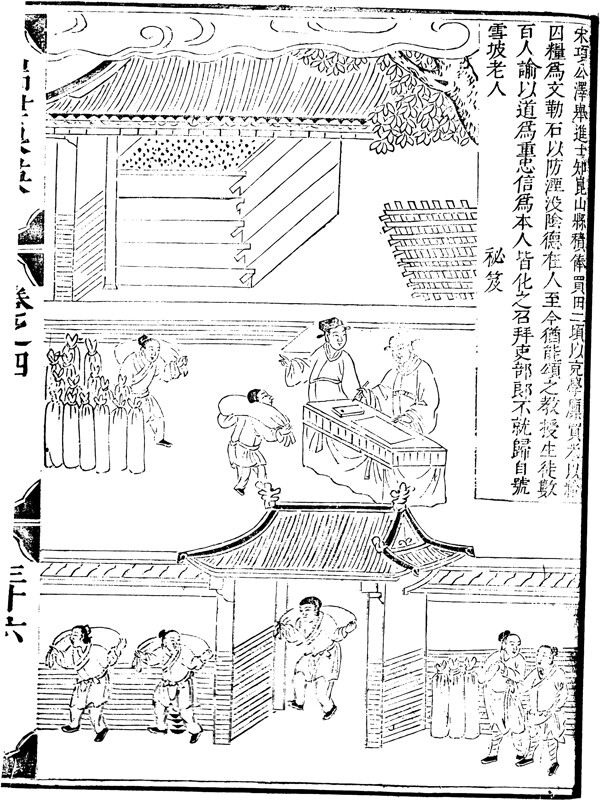 宋項公澤舉進士知崑山縣積俸買田二項以充學廪買米以給
囚糧爲文勒石以防湮没陰德在人至今猶能頌之教授生徒數
百人諭以道爲重忠信爲本人皆化之召拜吏部郎不就歸自號
雪坡老人
秘笈
卷之四
三十六